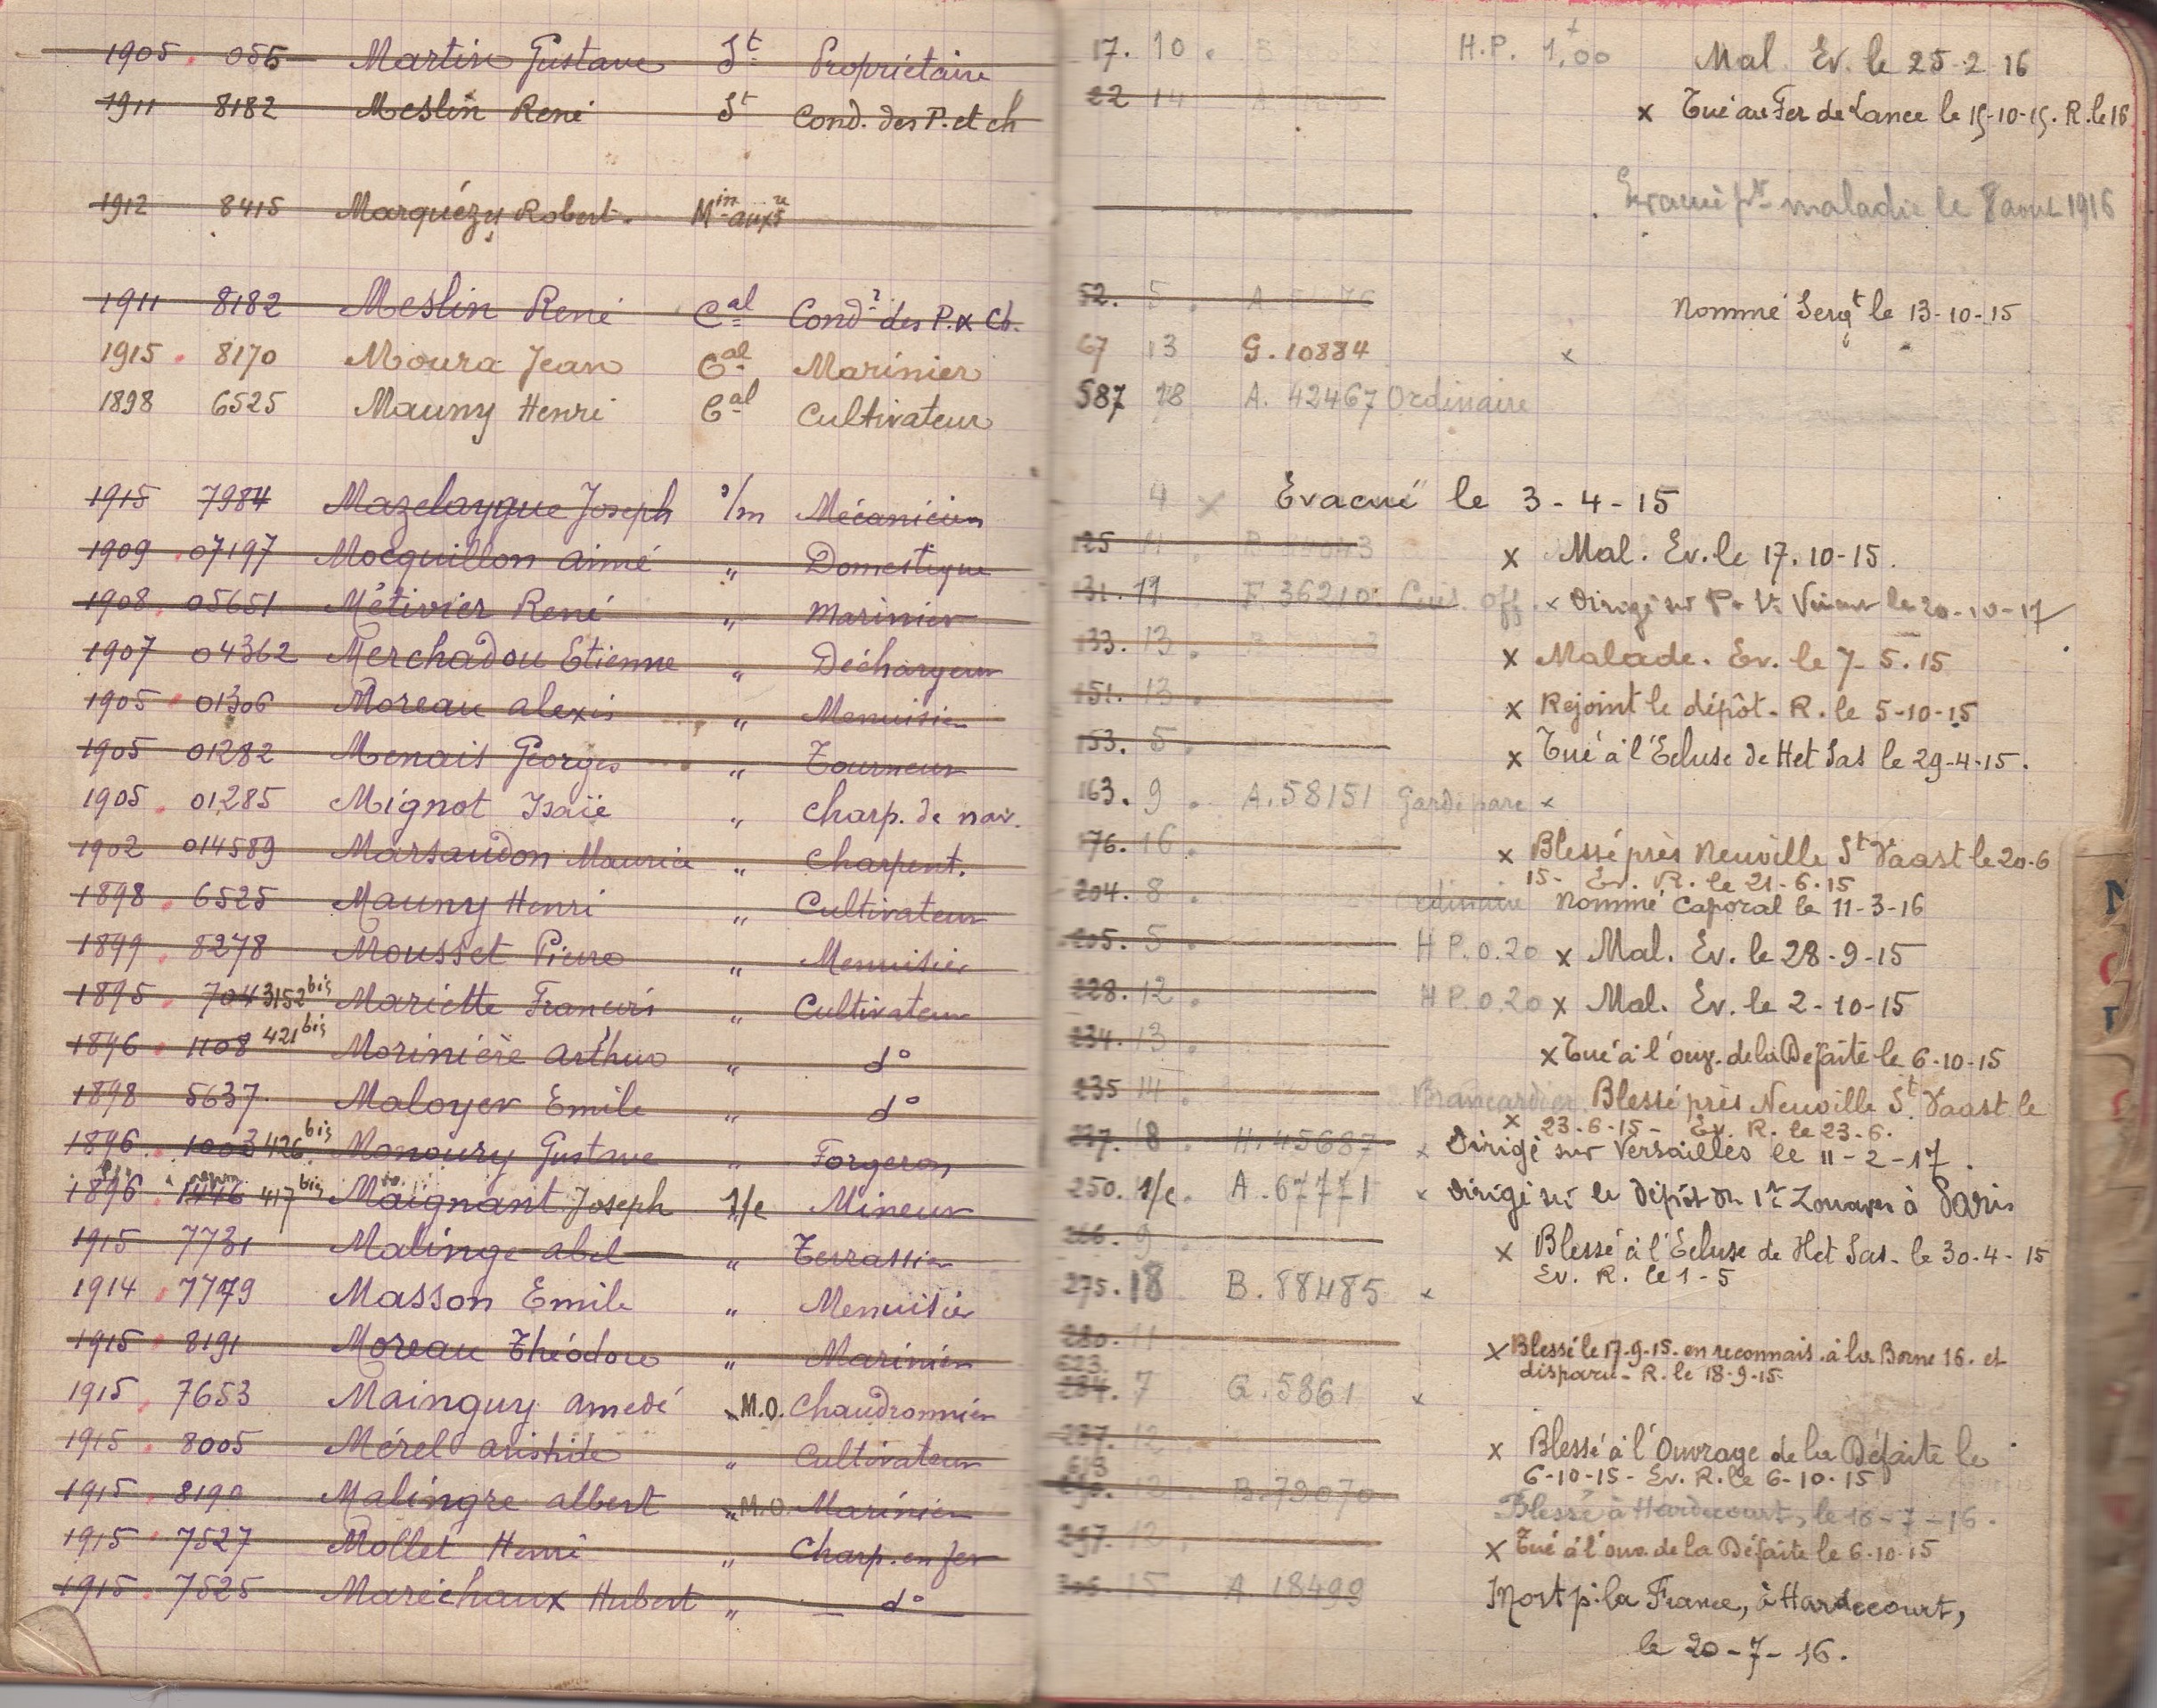 1905. 055 Martin Gustave St Propriétaire 17. 10. H.P. 1,00 Mal. Ev. le 25-2 16
1911 8182 Meslin René St Cond. des P. et ch 22 14 x Tué au Fer de Lance le 15-10-15. R. le 16
1912 8415 Marquézy Robert. Min auxre Evacué pr maladie le 8 aout 1916
1911 8182 Meslin René Cal Condr des P. & Ch. 52. 5. Nommé Sergt le 13-10-15
1915. 8170 Moura Jean Cal Marinier 67 13 G. 10884 x
1898 6525 Mauny Henri Cal Cultivateur 587 18 A. 42467 Ordinaire
1915 7984 Mazelaygue Joseph s/m Mécanicien 4 x Evacué le 3-4-15
1909. 07197 Mocquillon Aimé " Domestique 125 11. x Mal. Ev. le 17.10-15.
1908. 05651 Métivier René " Marinier 131. 11 F 36210. Cuis. off. x Dirigé sur le 20-10-17
1907 04362 Merchadou Etienne " Déchargeur 133. 13. x Malade. Ev. le 7-5.15
1905. 01306 Moreau Alexis " Menuisier 151. 13. x Rejoint le dépôt. R. le 5-10-15
1905 01282 Menait Georges " Tourneur 153. 5. x Tué à l'Ecluse de Het Sas le 29-4-15.
1905. 01285 Mignot Isaïe " Charp. de nav. 163. 9. A. 58151 Garde parc x
1902 014589 Marsaudon Maurice " Charpent. 176. 16. x Blessé près Neuville St Vaast le 20-6
15- Ev. R. le 21-6-15
1898. 6525 Mauny Henri " Cultivateur 204. 8. Nommé Caporal le 11-3-16
1899. 8278 Mousset Pierre " Menuisier 205. 5. H P. 0.20 x Mal. Ev. le 28-9-15
1895. 704 3152 bis Mariette Francois " Cultivateur 228. 12. H P. 0.20 x Mal. Ev. le 2-10-15
1896. 1108 421 bis Morinière Arthur " do 234. 13. x Tué à l'ouv. de la Défaite le 6-10-15
1898 5637. Maloyer Emile " do 235 14. Brancardier. Blessé près Neuville St. Vaast le
x 23-6-15- Ev. R. le 23-6.
1896. 1003 426 bis Monoury Gustave " Forgeron 237. 18. H. 45687 x Dirigé sur Versailles le 11-2-17.
1896. 1446 417 bis Maignant Joseph 1/c Mineur 250. 1/c. A. 67771 x Dirigé sur le dépôt du 1r Zouaves à Paris
1915 7731 Malinge Abel " Terrassier 266. 9 x Blessé à l'Ecluse de Het Sas. le 30-4-15
Ev. R. le 1-5
1914. 7779 Masson Emile " Menuisier 275. 18 B. 88485 x
1915. 8191 Moreau Théodore " Marinier 280. 11 x Blessé le 17-9-15. en reconnais. à la Borne 16. et
disparu- R. le 18-9-15.
1915. 7653 Mainguy Amedé " M.O. Chaudronnier 623. 284. 7 G. 5861 x
1915. 8005 Mérel Aristide " Cultivateur 287. 12 x Blessé à l'Ouvrage de la Défaite le
6-10-15- Ev. R. le 6-10-15
1915. 8190 Malingre Albert " M.O. Marinier 12 B. 79070 Blessé à Hardecourt, le 16-7-16.
1915. 7527 Mollet Henri " Charp. en fer 297. 12. x Tué à l'ouv. de la Défaite le 6-10-15
1915. 7525 Maréchaux Hubert " do 15 A. 18499 Mort p. la France, à Hardecourt,
le 20-7-16.